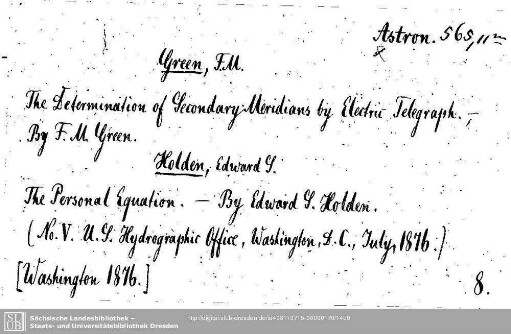 Astron. 565, 11 m
Green, F.M.
The Determination of Secondary Meridians by Electric Telegraph. —
By F. M. Green.
Holden, Edward S.
The Personal Equation. — By Edward S. Holden.
(No. V. U. S. Hydrographic Office, Washington, D. C., July, 1876.)
[Washington 1876.]
8.
SLUB
Sächsische Landesbibliothek –
Staats- und Universitätsbibliothek Dresden